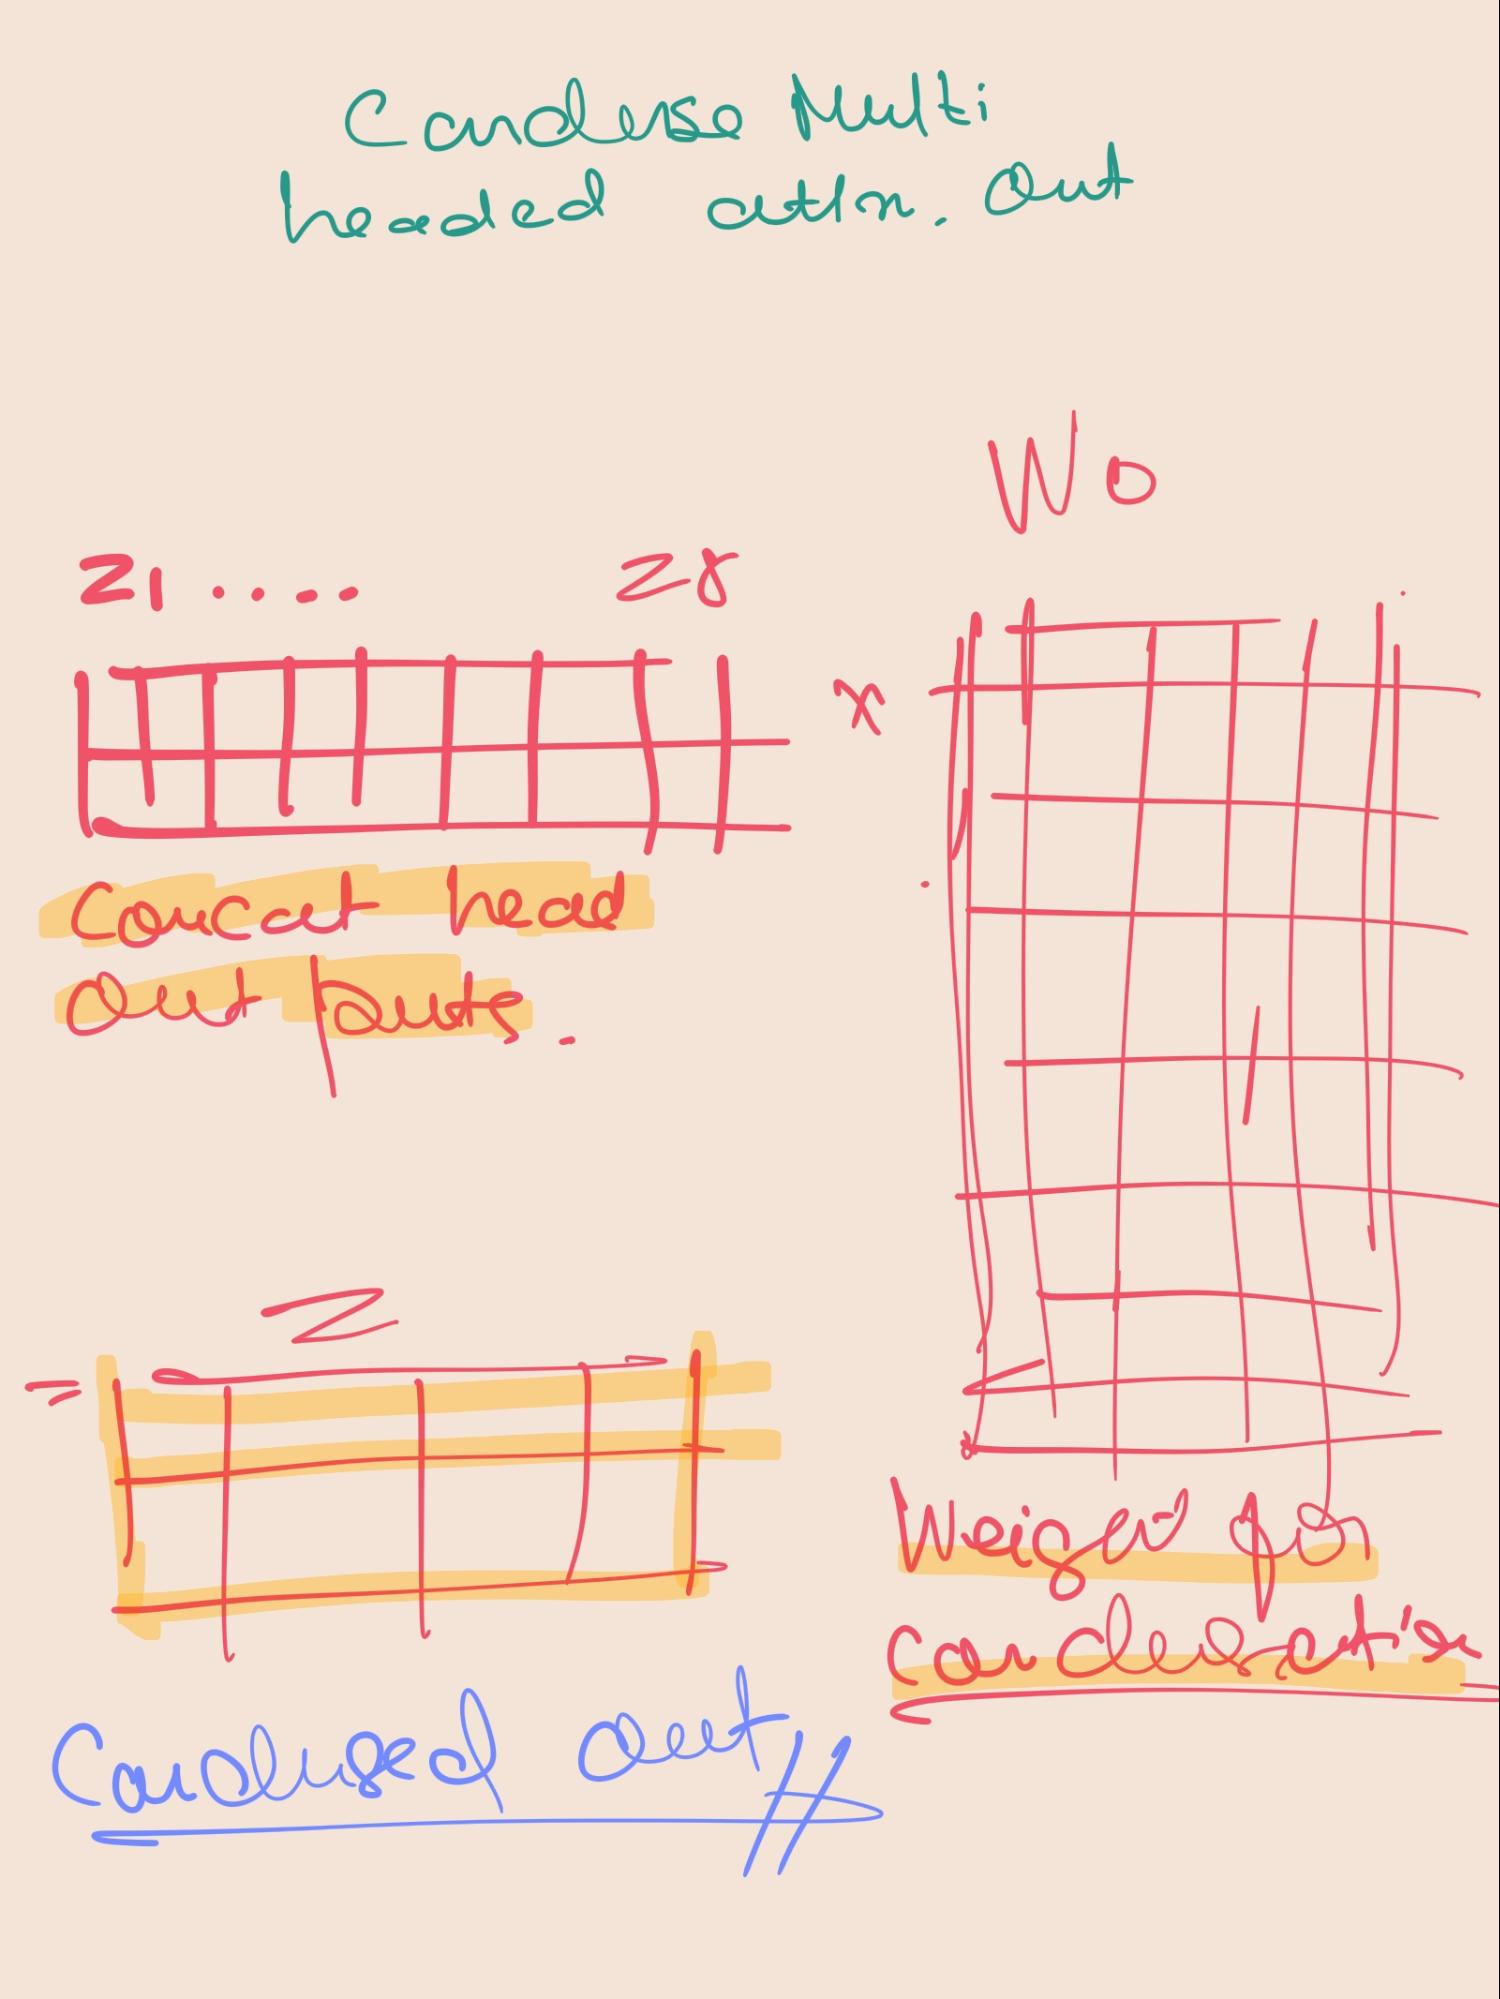 Conduse Multi
headed attn. Out
Wo
Z1 .... Z8
x
Concat head
Out puts.
Z
=
Weight for
Condusation
Condused out